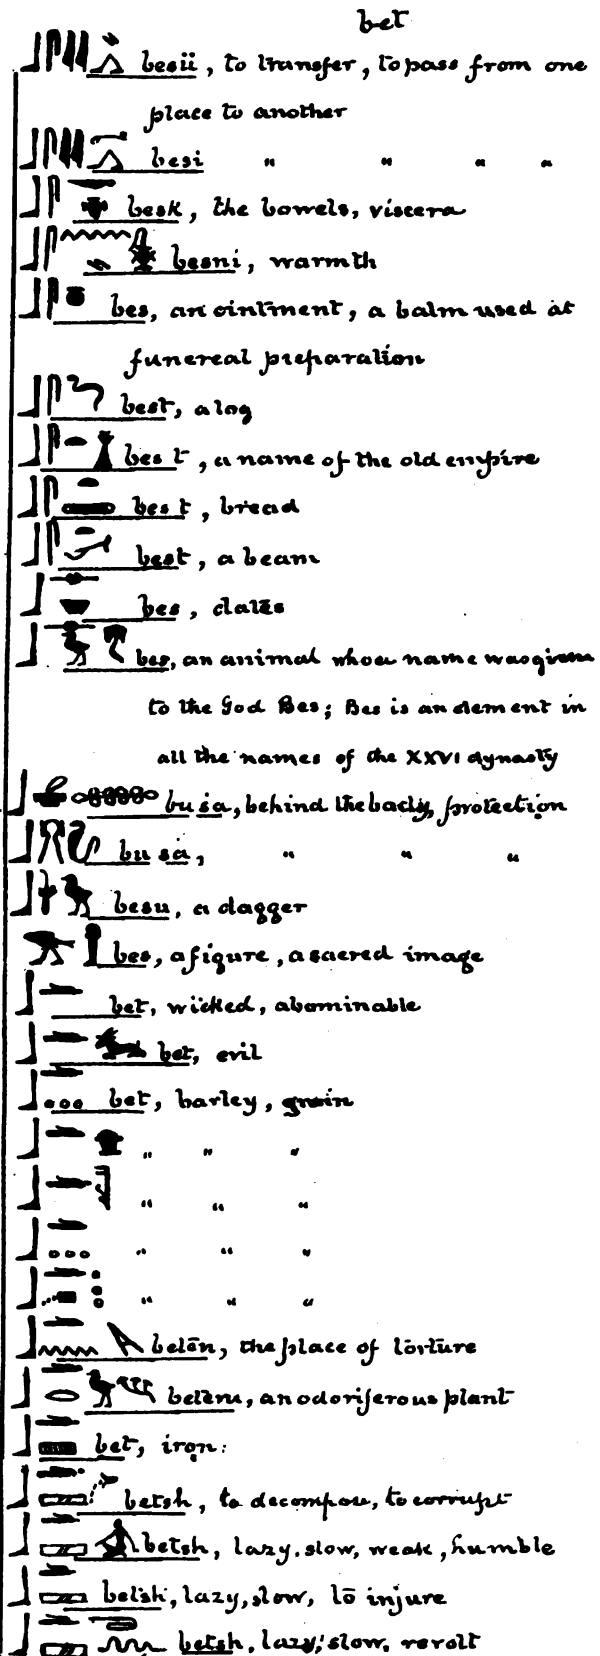 bet
besii, to transfer, to pass from one
place to another
besi " " " "
besk, the bowels, viscera
besni, warmth
bes, an ointment, a balm used at
funereal preparation
best, a log
bes t, a name of the old empire
bes t, bread
best, a beam
bes, dates
bes, an animal whose name was given
to the God Bes; Bes is an element in
all the names of the XXVI dynasty
bu sa, behind the back, protection
bu sa, " " "
besu, a dagger
bes, a figure, a sacred image
bet, wicked, abominable
bet, evil
bet, barley, grain
" " "
" " "
" " "
" " "
beten, the place of torture
betem, an odoriferous plant
bet, iron:
betsh, to decompose, to corrupt
betsh, lazy, slow, weak, humble
betsh, lazy, slow, to injure
betsh, lazy, slow, revolt